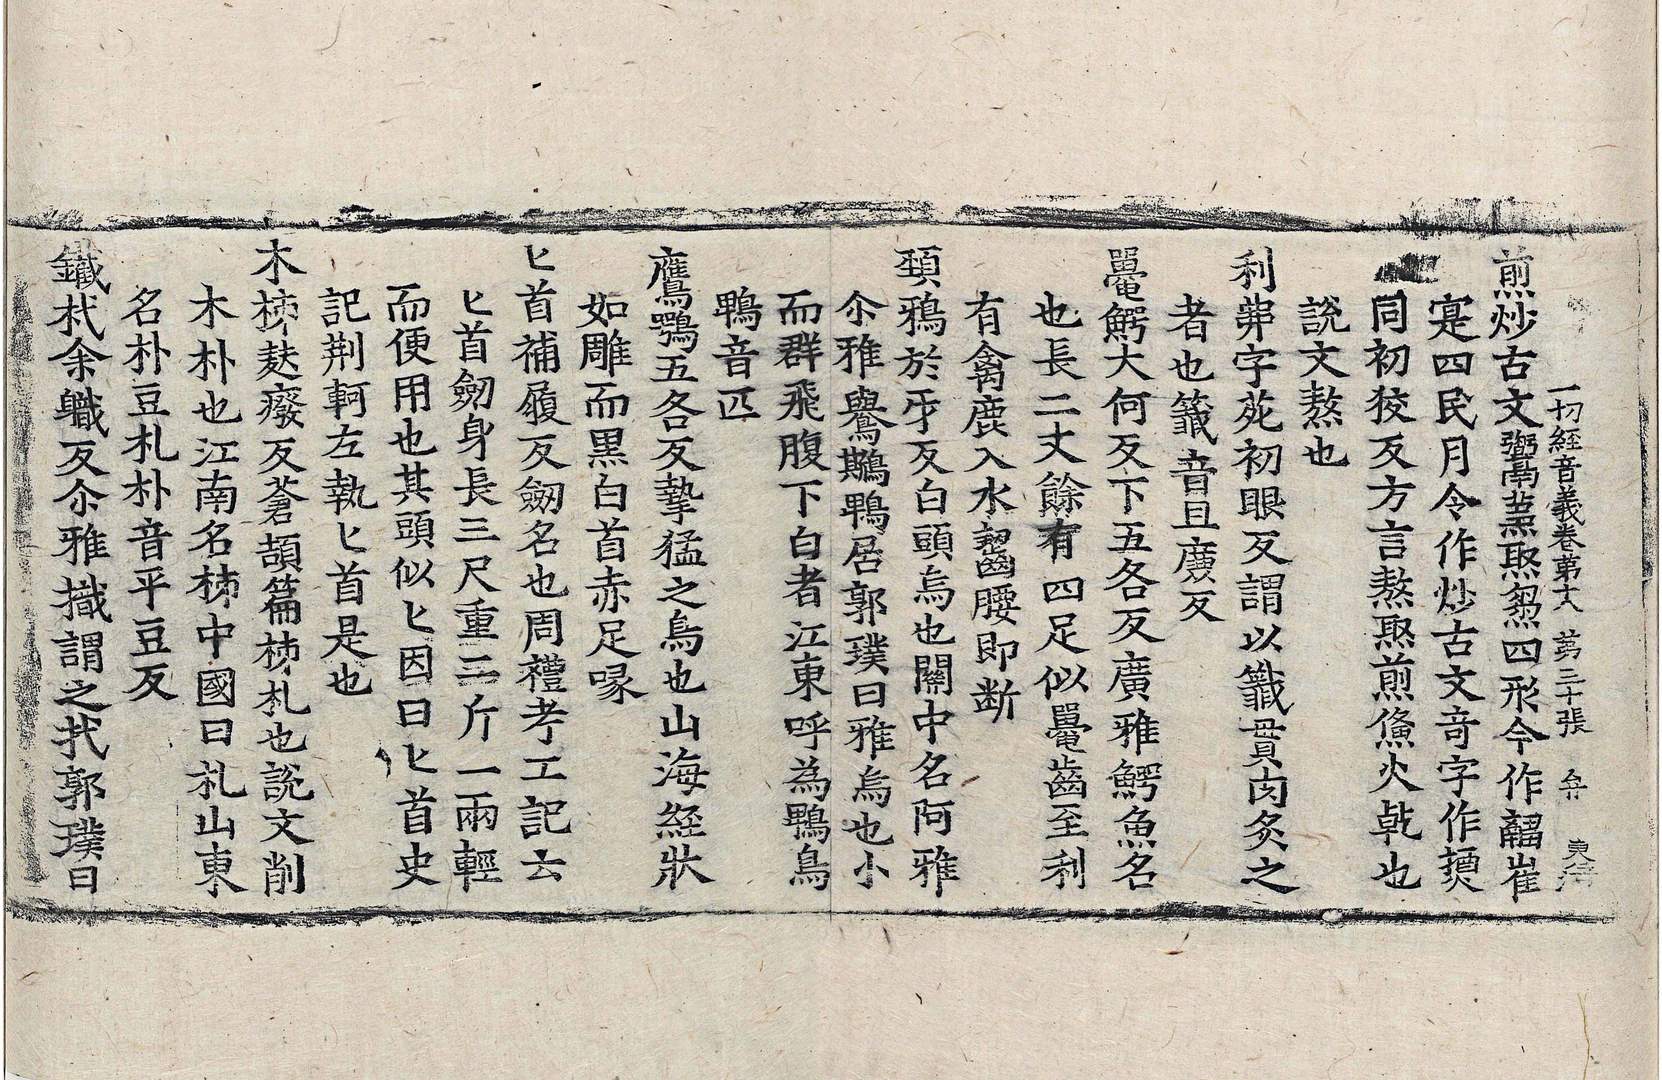 一切經音義卷第十八　第三十張　弁
煎炒古文䰞𤎅㷅䎡四形今作䎡崔
寔四民月令作炒古文奇字作㷶
同初狡反方言熬㷅煎㷶火乾也
說文熬也
利弗字苑初眼反謂以籤貫肉炙之
者也籤音且廉反
鼉鰐大何反下五各反廣雅鰐魚名
也長二丈餘有四足似鼉齒至利
有禽鹿入水齧腰即断
頸鴉於牙反白頭烏也關中名阿雅
尒雅鸒鶨鵯居郭璞曰雅烏也小
而群飛腹下白者江東呼為鵯烏
鵯音匹
鷹鶚五各反摯猛之鳥也山海經狀
如雕而黑白首赤足喙
匕首補履反劒名也周禮考工記云
匕首劒身長三尺重二斤一兩輕
而便用也其頭似匕因曰匕首史
記荆軻左執匕首是也
木柿麸廢反蒼頡篇柿札也說文削
木朴也江南名柿中國曰札山東
名朴豆札朴音平豆反
鐵杙余軄反尒雅樴謂之杙郭璞曰